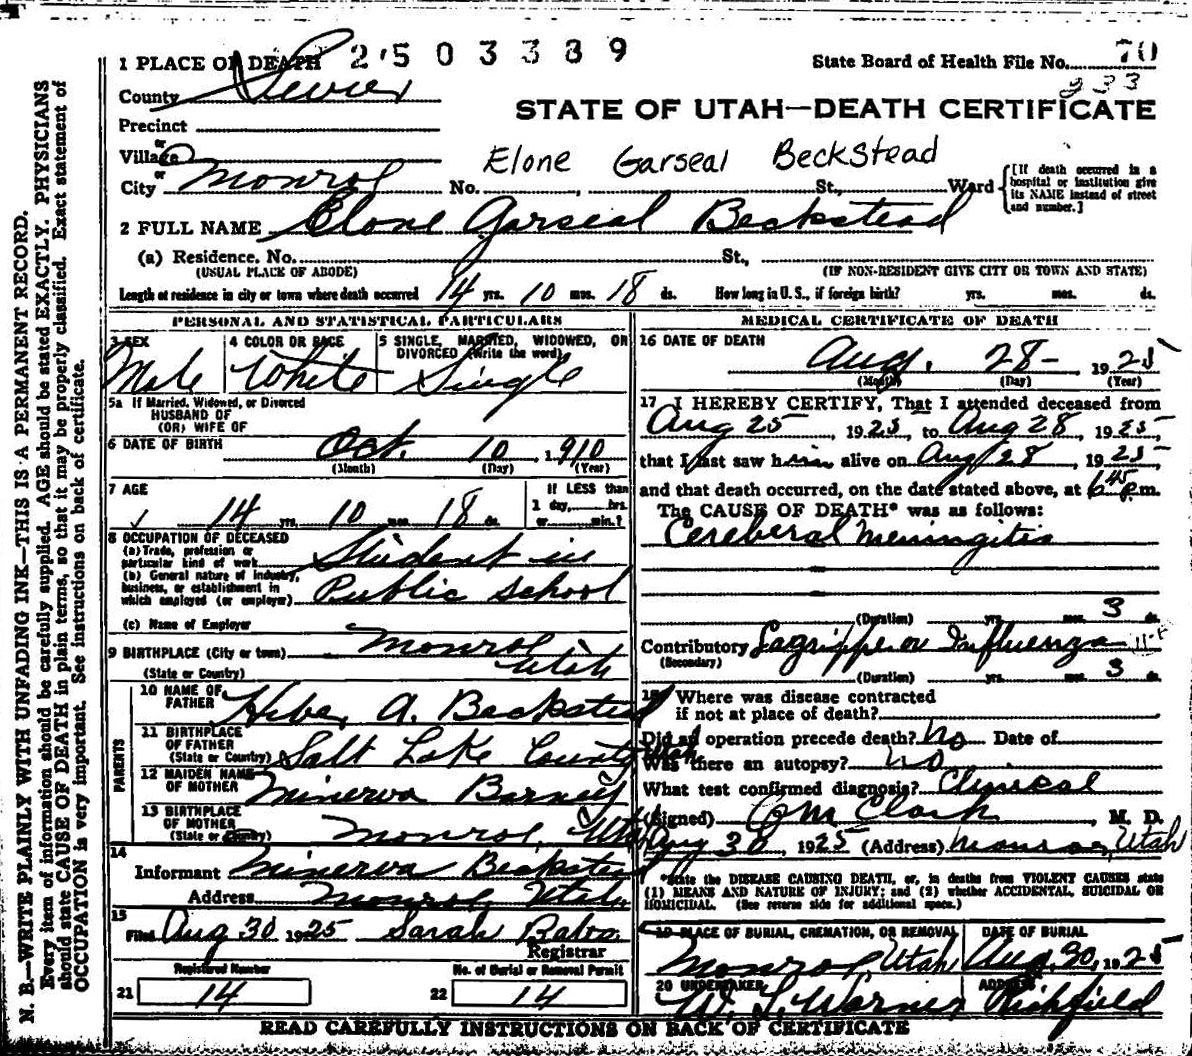 N. B.—WRITE PLAINLY WITH UNFADING INK—THIS IS A PERMANENT RECORD.
Every item of information should be carefully supplied. AGE should be stated EXACTLY. PHYSICIANS
should state CAUSE OF DEATH in plain terms, so that it may be properly classified. Exact statement of
OCCUPATION is very important. See instructions on back of certificate.
1 PLACE OF DEATH 2503389
State Board of Health File No. 70
233
County Sevier
STATE OF UTAH—DEATH CERTIFICATE
Precinct
or
Village
Elone Garseal Beckstead
or
City Monroe No. , St., Ward
[If death occurred in a
hospital or institution give
its NAME instead of street
and number.]
2 FULL NAME Elone Garseal Beckstead
(a) Residence. No. St.,
(USUAL PLACE OF ABODE) (IF NON-RESIDENT GIVE CITY OR TOWN AND STATE)
Length of residence in city or town where death occurred 14 yrs. 10 mos. 18 ds. How long in U.S., if foreign birth? yrs. mos. ds.
PERSONAL AND STATISTICAL PARTICULARS
3 SEX
Male
4 COLOR OR RACE
White
5 SINGLE, MARRIED, WIDOWED, OR
DIVORCED (Write the word)
Single
5a If Married, Widowed, or Divorced
HUSBAND OF
(OR) WIFE OF
6 DATE OF BIRTH Oct. 10, 1910
(Month) (Day) (Year)
7 AGE
14 yrs. 10 mos. 18 ds.
If LESS than
1 day,......hrs.
or......min.?
8 OCCUPATION OF DECEASED
(a) Trade, profession or
particular kind of work Student in
(b) General nature of industry,
business, or establishment in
which employed (or employer) Public School
(c) Name of Employer
9 BIRTHPLACE (City or town) Monroe
Utah
(State or Country)
PARENTS
10 NAME OF
FATHER Heber A. Beckstead
11 BIRTHPLACE
OF FATHER
(State or Country) Salt Lake County Utah
12 MAIDEN NAME
OF MOTHER Minerva Barney
13 BIRTHPLACE
OF MOTHER
(State or Country) Monroe, Utah
14
Informant Minerva Beckstead
Address Monroe Utah
15
Filed Aug 30 1925 Sarah
Registrar
Registered Number
21 14
No. of Burial or Removal Permit
22 14
MEDICAL CERTIFICATE OF DEATH
16 DATE OF DEATH
Aug. 28- 1925
(Month) (Day) (Year)
17 I HEREBY CERTIFY, That I attended deceased from
Aug 25, 1925, to Aug 28, 1925,
that I last saw him alive on Aug 28, 1925
and that death occurred, on the date stated above, at 6 45 p.m.
The CAUSE OF DEATH* was as follows:
Cereberal Meningitis
(Duration) yrs. mos. 3 ds.
Contributory Lagrippe or Influenza
(Secondary)
(Duration) yrs. mos. 3 ds.
18 Where was disease contracted
if not at place of death?
Did an operation precede death? No Date of
Was there an autopsy? No
What test confirmed diagnosis? Clinical
(Signed) Clark, M. D.
Aug 30, 1925 (Address) Monroe, Utah
*State the DISEASE CAUSING DEATH, or, in deaths from VIOLENT CAUSES state
(1) MEANS AND NATURE OF INJURY; and (2) whether ACCIDENTAL, SUICIDAL OR
HOMICIDAL. (See reverse side for additional space.)
19 PLACE OF BURIAL, CREMATION, OR REMOVAL
Monroe, Utah
DATE OF BURIAL
Aug. 30, 1925
20 UNDERTAKER
W. L. Warner
ADDRESS
Richfield
READ CAREFULLY INSTRUCTIONS ON BACK OF CERTIFICATE